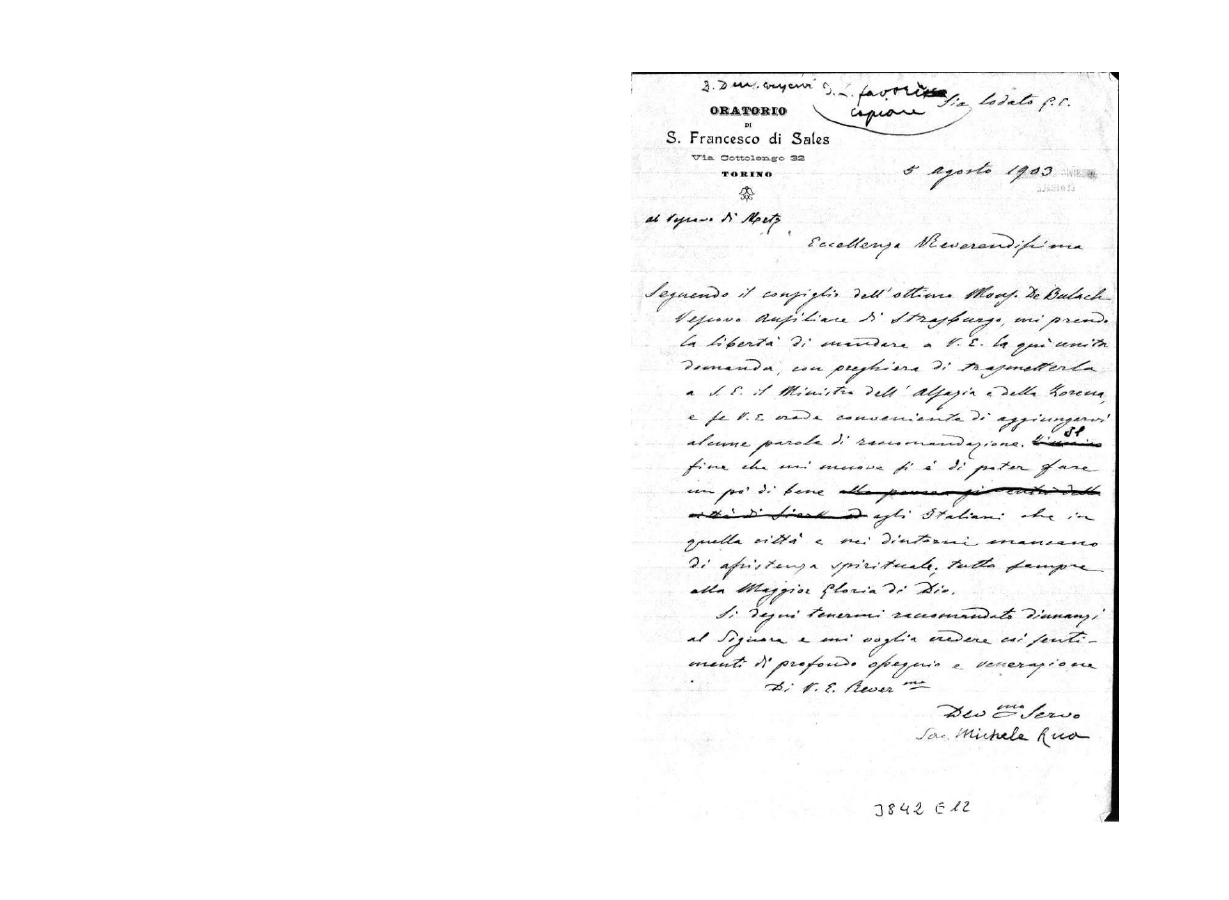 favorisca
Sia lodato G. C.
copiare
ORATORIO
DI
S. Francesco di Sales
Via Cottolengo 32
TORINO
5 agosto 1903
al Vescovo di Metz
Eccellenza Reverendissima
Seguendo il consiglio dell'ottimo Mons. De Bulach
Vescovo Ausiliare di Strasburgo, mi prendo
la libertà di mandare a V. E. la quì unita
domanda, con preghiera di trasmetterla
a S. E. il Ministro dell'Alsazia e della Lorena,
e se V. E crede conveniente di aggiungervi
alcune parole di raccomandazione. Il
fine che mi muove si è di poter fare
un pò di bene
agli Italiani che in
quella città e nei dintorni mancano
di assistenza spirituale; tutto sempre
alla Maggior Gloria di Dio.
Si degni tenermi raccomandato dinnanzi
al Signore e mi voglia credere coi senti-
menti di profondo ossequio e venerazione
Di V. E. Rever ma
Dev mo Servo
Sac. Michele Rua
3842 E 12